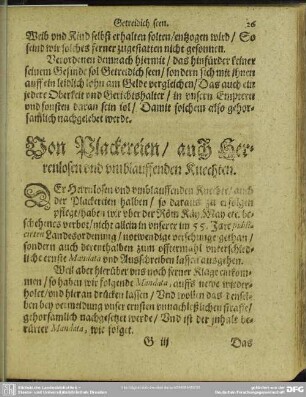 Getreidich seen. 26
Weib vnd Kind selbst erhalten solten/entzogen wird/ So
seind wir solches ferner zugestatten nicht gesonnen.
Verordenen demnach hiermit/ das hinfürder keiner
seinem Gesinde sol Getreidich seen/ sondern sich mit ihnen
auff ein leidlich lohn am Gelde vergleichen/ Das auch ein
jedere Oberkeit vnd Gerichtshalter/ in vnsern
vnd sonsten daran sein sol/ Damit solchem also gehor-
samlich nachgelebet werde.
Von Plackereien/ auch Her-
renlosen vnd vmblauffenden Knechten.
DEr Herrnlosen vnd vmblauffenden Knechte/ auch
der Plackereien halben/ so daraus zu erfolgen
pflegt/ haben wir vber der Röm. Käy. May. etc. be-
schehenes verbot/ nicht allein in vnserer im 55. Jare publi-
cirten Landesordenung/ notwendige versehunge gethan/
sondern auch derenthalben zum offtermal vnterschied-
liche ernste Mandata vnd Ausschreiben lassen ausgehen.
Weil aber hierüber vns noch ferner Klage ankom-
men/ so haben wir folgende Mandata, auffs newe wieder-
holet/ vnd hieran drücken lassen/ Vnd wollen das densel-
ben bey vermeidung vnser ernsten vnnachlessichen straffe/
gehorsamlich nachgesetzt werde/ Vnd ist der jnhalt be-
rürter Mandata, wie folget.
G iij Das